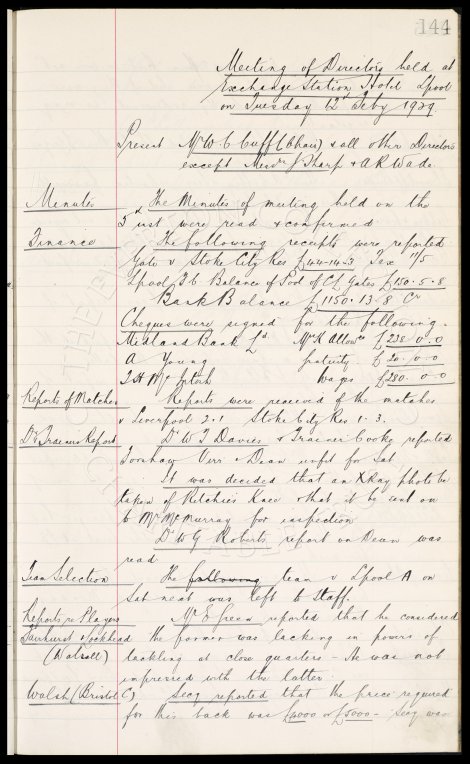 144
Meeting of Directors held at
Exchange Station Hotel Lpool
on Tuesday 12th Feby 1929
Present Mr W. C. Cuff (Chair) & all other Directors
except Messrs J Sharp & A R Wade.
Minutes The Minutes of meeting held on the
5th inst were read & confirmed
Finance The following receipts were reported
Gate v Stoke City Res £44-14-3 Tax 11/5
Lpool F.C. Balance of Pool of Cp. Gates £150.5.8
Bank Balance £1150.13.8 Cr
Cheques were signed for the following.
Midland Bank Ld. £238.0.0
A Young Gratuity £20.0.0
T. H. McIntosh Wages £280.0.0
Reports of Matches Reports were received of the matches
v Liverpool 2.1 Stoke City Res 1-3.
Dr & Trainers Report Dr W J Davies & Trainer Cooke reported
Virr & Dean unfit for Sat
It was decided that an X Ray photo be
taken of Ritchie's Knee & that it be sent on
to Mr McMurray for inspection
Dr W G Roberts report on Dean was
read
Team Selection The following team v Lpool A on
Sat next was left to Staff.
Reports re Players Mr E Green reported that he considered
the former was lacking in powers of
(Walsall) tackling at close quarters - He was not
impressed with the latter.
Walsh (Bristol C). Secy reported that the price required
for this back was £4000 or £5000 - Secy was